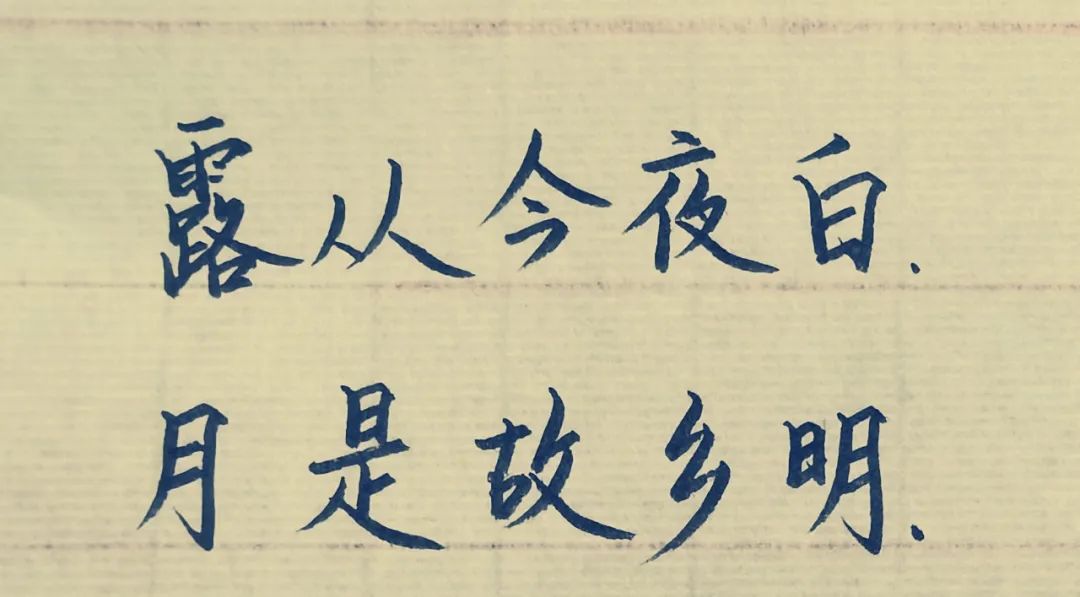 露从今夜白.
月是故乡明.